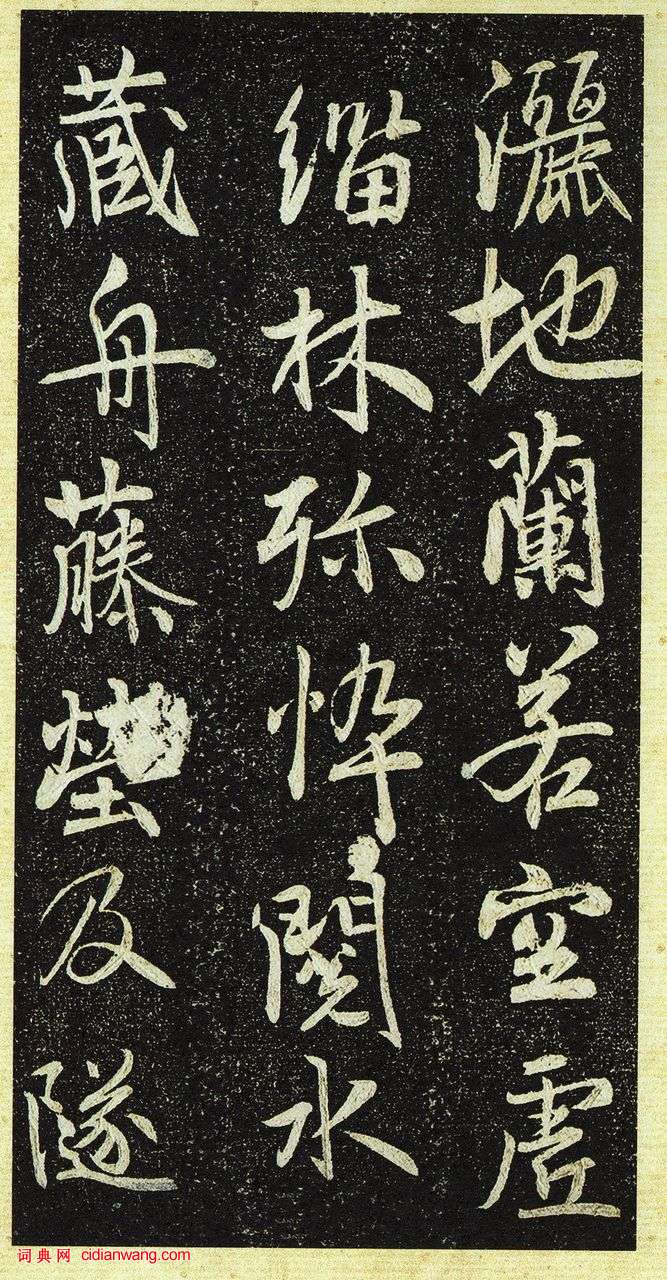 灑地蘭若空虛
緇林弥悴閱水
藏舟藤及隧
词典网 cidianwang.com